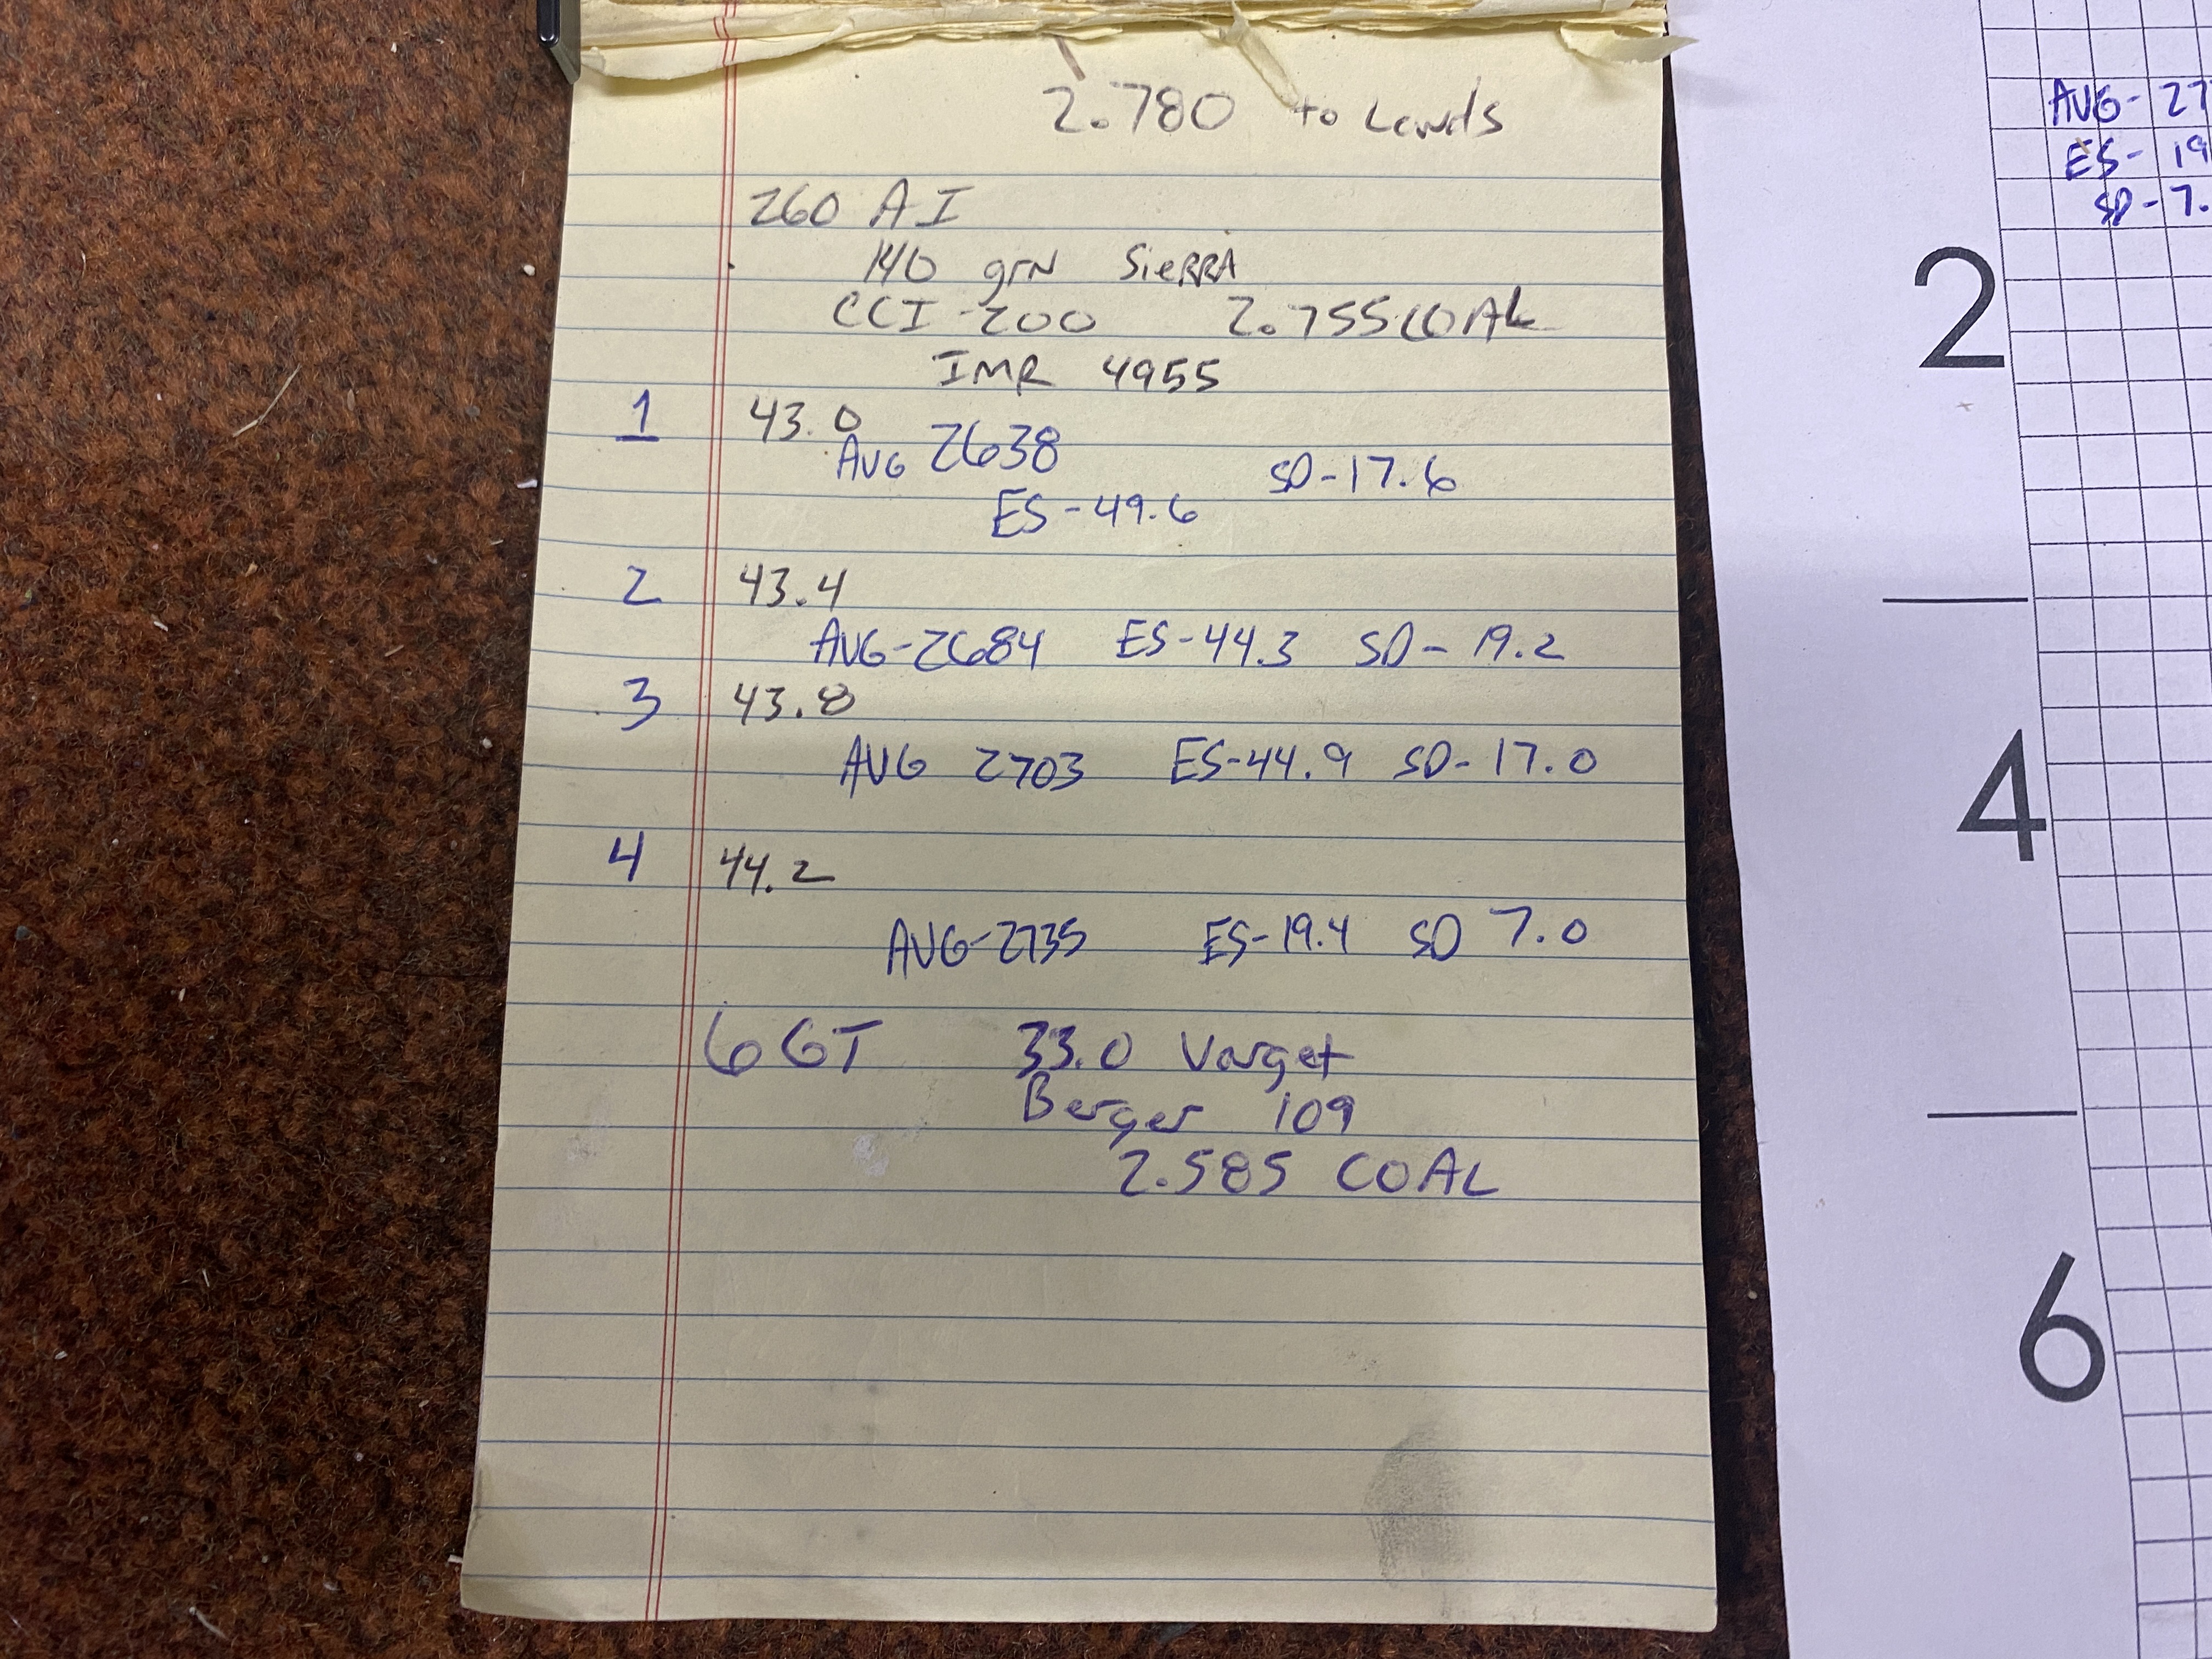 2.780 to Lands
260 AI
140 grN SieRRA
CCI-200 2.755 COAL
IMR 4955
1 43.0
AVG 2638 SD-17.6
ES-49.6
2 43.4
AVG-2684 ES-44.3 SD-19.2
3 43.8
AVG 2703 ES-44.9 SD-17.0
4 44.2
AVG-2735 ES-19.4 SD 7.0
6 GT 33.0 Varget
Berger 109
2.585 COAL
AVG- 27
ES- 19
SD- 7.
2
4
6